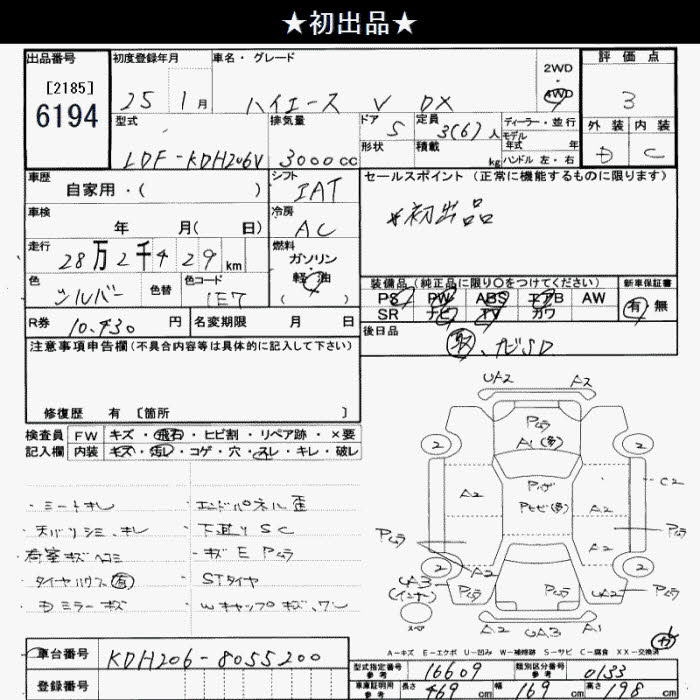 ★初出品★
出品番号
[2185]
6194
初度登録年月
25 1月
車名・グレード
ハイエース V DX
2WD
4WD
評価点
3
外装 内装
D C
型式
LDF-KDH206V
排気量
3000cc
ドア
5
形状
定員
3(6)人
積載
kg
ディーラー・並行
モデル
年式 年
ハンドル 左・右
車歴
自家用・( )
シフト
IAT
セールスポイント (正常に機能するものに限ります)
*初出品
車検
年 月( 日)
冷房
AC
走行
28万2千429km
燃料
ガソリン
・
軽油
色
シルバー
色替
色コード
1E7
装備品 (純正品に限り○をつけてください)
PS PW ABS エアB AW
SR ナビ TV カワ
新車保証書
有・無
R券
10.430円
名変期限 月 日
後日品
取、ナビSD
注意事項申告欄(不具合内容等は具体的に記入して下さい)
修復歴 有 [箇所 ]
検査員
記入欄
FW キズ・飛石・ヒビ割・リペア跡・×要
内装 キズ・汚レ・コゲ・穴・スレ・キレ・破レ
・シートキレ
・天バリシミ、キレ
・荷室キズヘコミ
・タイヤハウス有
・Dミラーキズ
・エンドパネル歪
・下廻りSC
・キズEPムラ
・STタイヤ
・Wキャップキズ、ワレ
UA2 A2
Pムラ
A1(多)
2 2
Pハゲ
Pヒビ(多)
A2 A2
C2
Pムラ
A2
Pムラ
A2
2 2
UA3
(インナー)
Pムラ Pムラ
UA2
Pムラ
スペア
A2 UA3 A1
A-キズ E-エクボ U-凹み W-補修跡 S-サビ C-腐食 XX-交換済
車台番号
KDH206-8055200
登録番号
型式指定番号
参考
16609
類別区分番号
参考
0133
車庫証明用
参考
長さ 469cm 幅 169cm 高さ 198cm